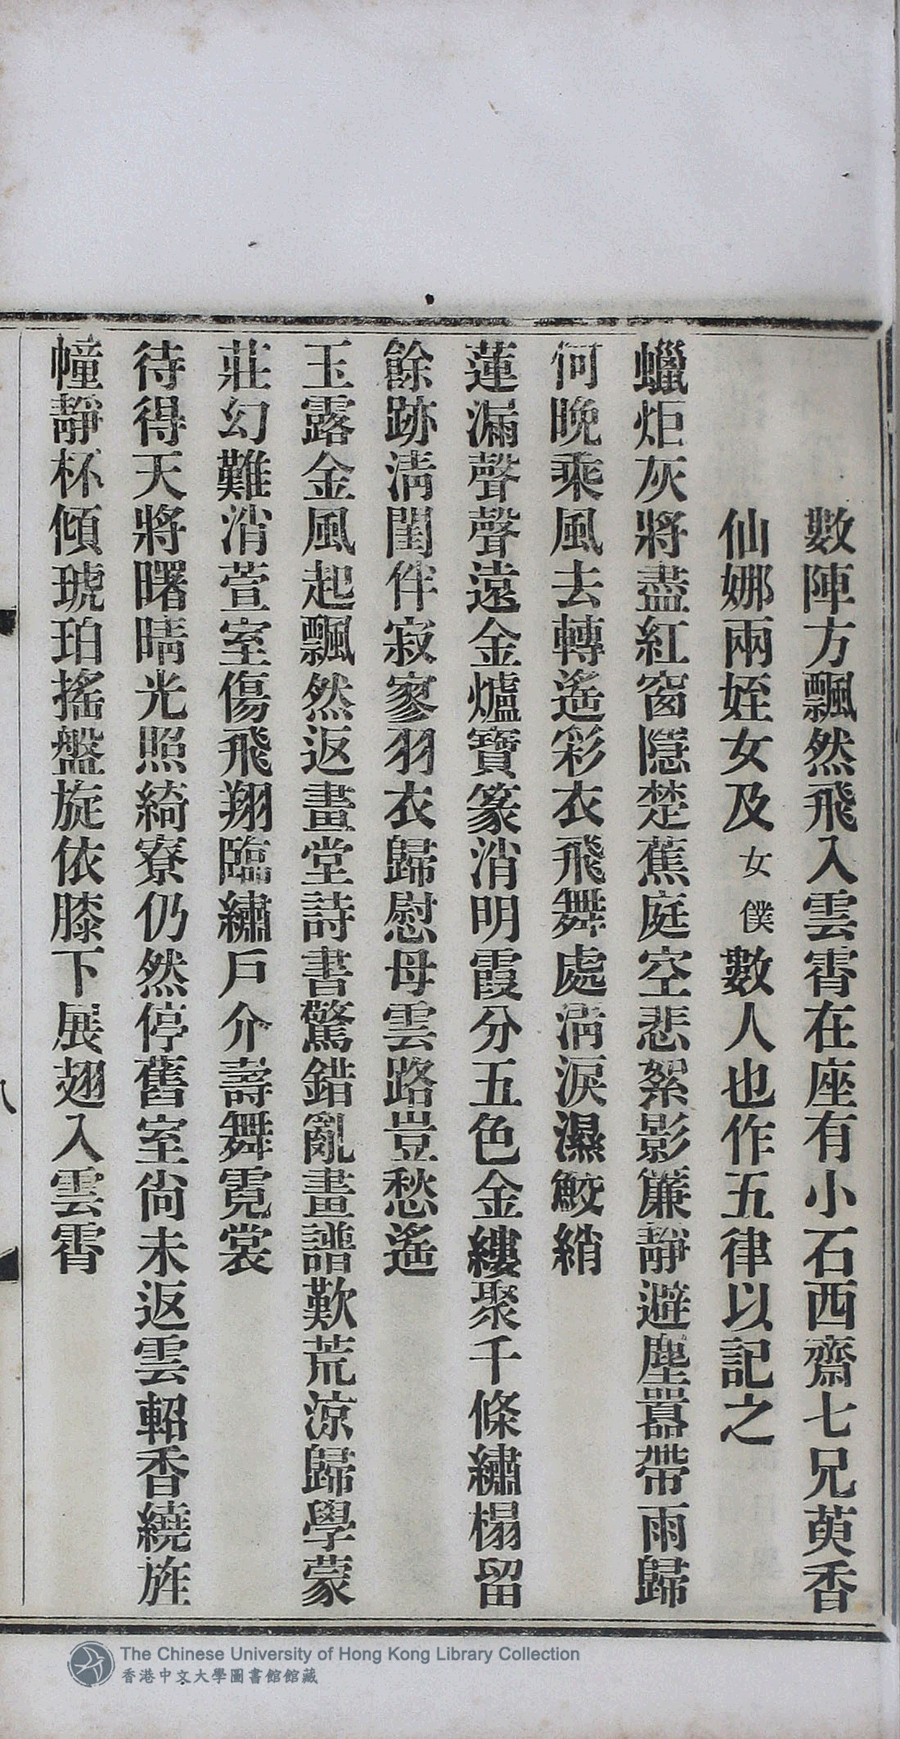 數陣方飄然飛入雲霄在座有小石西齋七兄萸香
仙娜兩姪女及女僕數人也作五律以記之
蠟炬灰將盡紅窗隱楚蕉庭空悲絮影簾靜避塵囂帶雨歸
何晚乘風去轉遙彩衣飛舞處淸淚濕鮫綃
蓮漏聲聲遠金爐寶篆消明霞分五色金縷聚千條繡榻留
餘跡淸閨伴寂寥羽衣歸慰母雲路豈愁遙
玉露金風起飄然返畫堂詩書驚錯亂畫譜歎荒涼歸學蒙
莊幻難消萱室傷飛翔臨繡戶介壽舞霓裳
待得天將曙晴光照綺寮仍然停舊室尙未返雲軺香繞旌
幢靜杯傾琥珀搖盤旋依膝下展翅入雲霄
八
The Chinese University of Hong Kong Library Collection
香港中文大學圖書館館藏